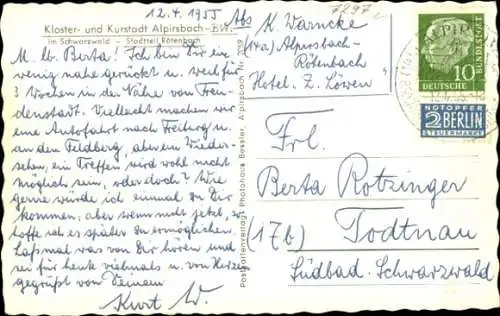 12.4.1955
Kloster- und Kurstadt Alpirsbach
im Schwarzwald - Stadtteil Rötenbach
M. lb. Berta! Ich bin Dir ein
wenig nahe gerückt u. weile für
3 Wochen in der Nähe von Freu-
denstadt. Vielleicht machen wir
eine Autofahrt nach Freiburg u.
an den Feldberg, aber ein Wieder-
sehen, ein Treffen wird wohl nicht
möglich sein, oder doch? Wie
gerne würde ich einmal zu Dir
kommen, aber wenn nicht jetzt, so
hoffe ich es später zu ermöglichen.
Laß mal was von Dir hören und
sei für heute vielmals u. von Herzen
gegrüßt von Deinem
Kurt W.
Postkartenverlag Photohaus Bessler, Alpirsbach Nr.
Abs K. Warncke
Alpirsbach-
Rötenbach
Hotel „Z. Löwen"
7297
10
DEUTSCHE
BUNDESPOST
NOTOPFER
2 BERLIN
STEUERMARKE
Frl.
Berta Rotzinger
(17b) Todtnau
Südbad. Schwarzwald